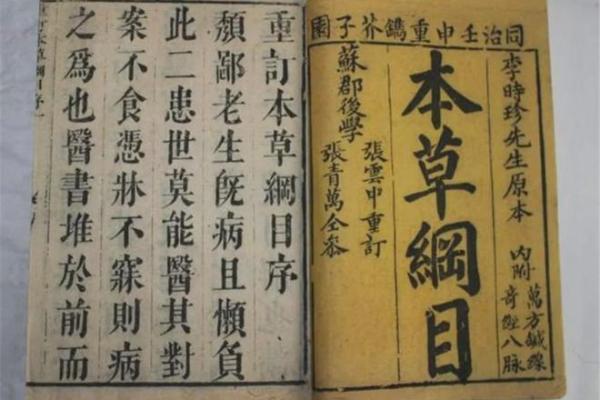 同治壬申重鐫芥子園
李時珍先生原本
內附
萬方鍼線
奇經八脉
本草綱目
蘇郡後學
張雲中重訂
張青萬仝叅
重訂本草綱目序
頽鄙老生旣病且懶負
此二患世莫能醫其對
案不食憑牀不寐則病
之爲也醫書堆於前而